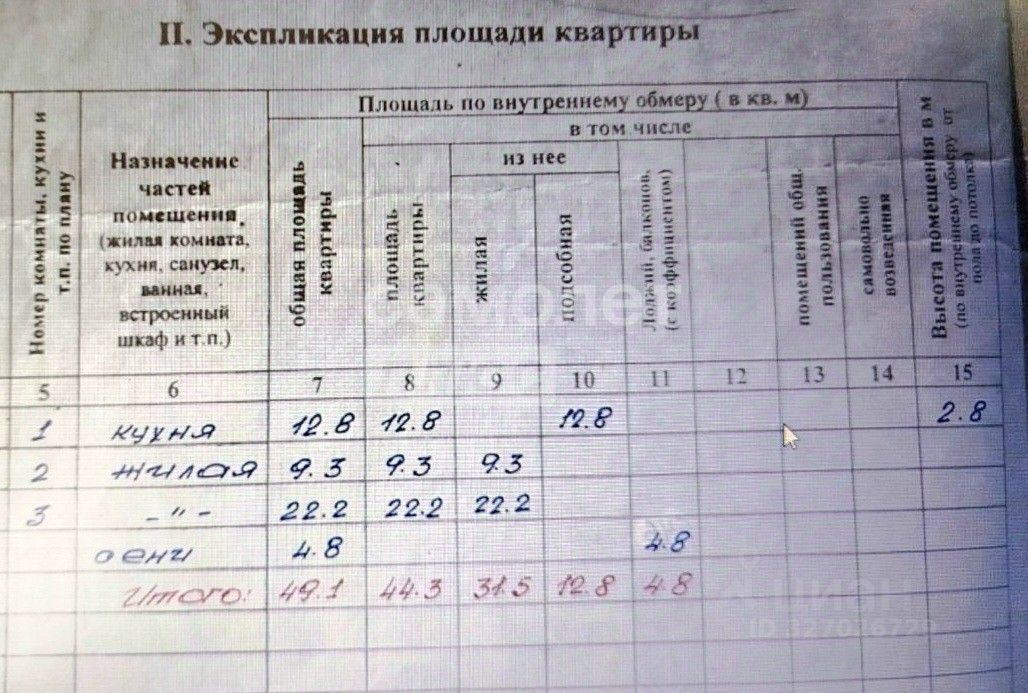 II. Экспликация площади квартиры
Номер комнаты, кухни и т.п. по плану
Назначение
частей
помещения,
(жилая комната,
кухня, санузел,
ванная,
встроенный
шкаф и т.п.)
Площадь по внутреннему обмеру ( в кв. м)
общая площадь квартиры
в том числе
площадь квартиры
из нее
жилая
подсобная
Лоджий, балконов, (с коэффициентом)
помещений общ. пользования
самовольно возведенная
Высота помещения в м (по внутреннему обмеру от пола до потолка)
5 6 7 8 9 10 11 12 13 14 15
1 кухня 12.8 12.8 12.8 2.8
2 жилая 9.3 9.3 9.3
3 -"- 22.2 22.2 22.2
4.8 4.8
Итого: 49.1 44.3 31.5 12.8 4.8